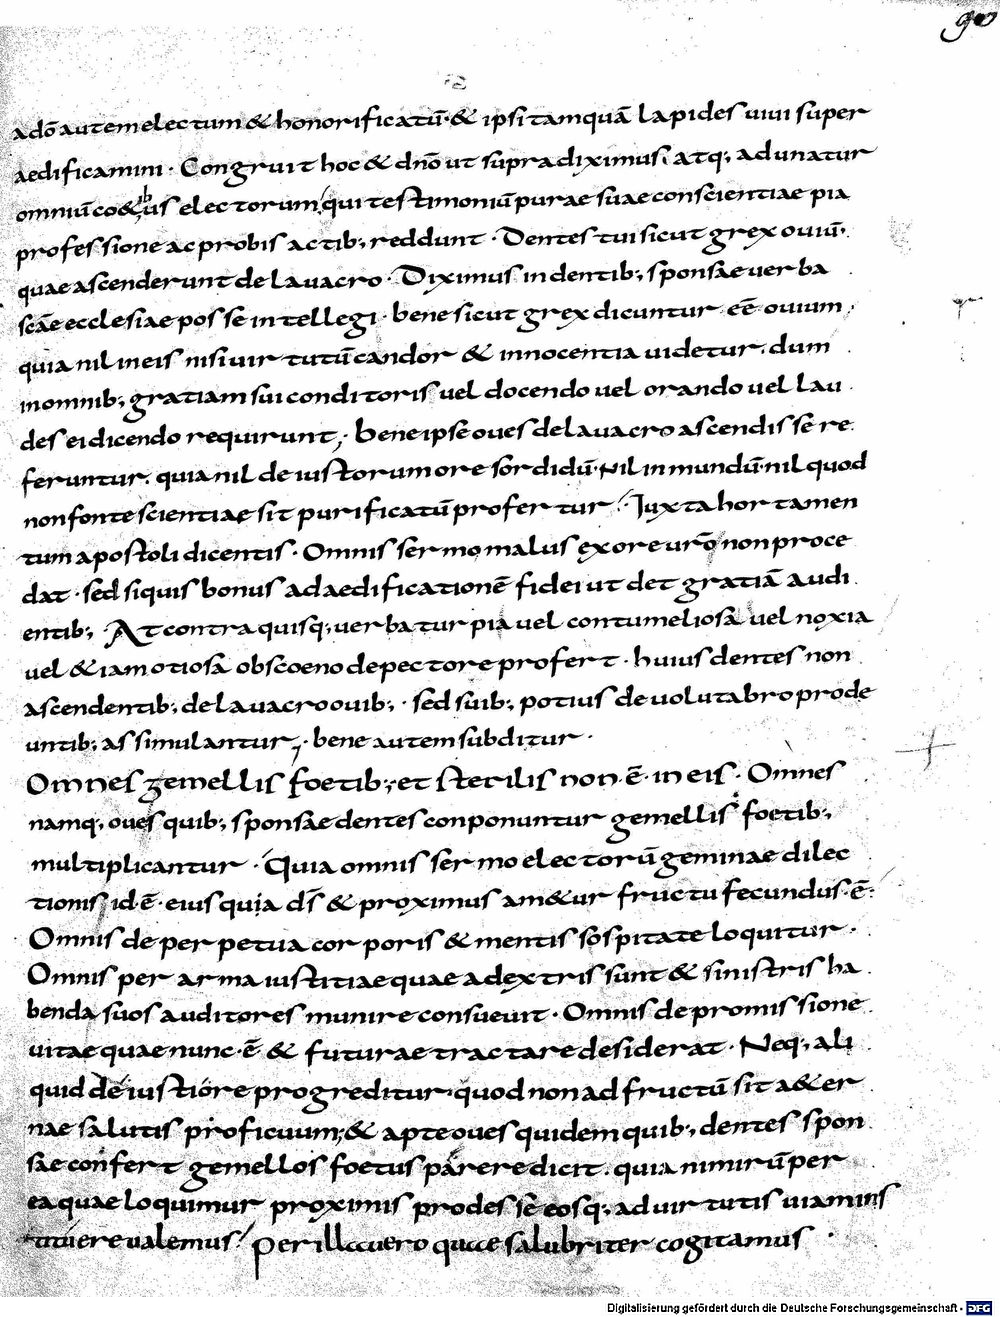 90
adō autem electum & honorificatū· & ipsi tamquā lapides uiui super
aedificamini · Congruit hoc & dnō ut supra diximus· atq; adunatur
omniū co&ibus electorum, qui testimoniū purae suae conscientiae pia
professione ac probis actib; reddunt · Dentes tui sicut grex ouiū·
quae ascenderunt de lauacro · Diximus in dentib; sponsae uerba
scāe ecclesiae posse intellegi · bene sicut grex dicuntur eē ouium,
quia nil in eis nisi uirtutū candor & innocentia uidetur· dum
in omnib; gratiam sui conditoris uel docendo uel orando uel lau
des ei dicendo requirunt; bene ipse oues de lauacro ascendisse re
feruntur· quia nil de iustorum ore sordidū· nil inmundū· nil quod
non fonte scientiae sit purificatū profertur · Iuxta hortamen
tum apostoli dicentis · Omnis sermo malus ex ore urō non proce
dat · sed siquis bonus ad aedificationē fidei ut det gratiā audi
entib; · At contra quisq; uerba turpia uel contumeliosa uel noxia
uel &iam otiosa obscoeno de pectore profert · huius dentes non
ascendentib; de lauacro ouib; · sed suib; potius de uolutabro prode
untib; assimulantur; · bene autem subditur ·
Omnes gemellis foetib; et sterilis non ē· in eis · Omnes
namq; oues quib; sponsae dentes conponuntur gemellis foetib;
multiplicantur · Quia omnis sermo electorū geminae dilec
tionis id· ē· eius quia ds̄ & proximus am&ur fructu fecundus· ē·
Omnis de perpetua corporis & mentis sospitate loquitur ·
Omnis per arma iustitiae quae a dextris sunt & sinistris ha
benda suos auditores munire consueuit · Omnis de promissione
uitae quae nunc· ē· & futurae tractare desiderat · Neq; ali
quid de iusti ore progreditur· quod non ad fructū sit a&er
nae salutis proficuum; & apte oues quidem quib; dentes spon
sae confert gemellos foetus parere dicit· quia nimirū per
ea quae loquimur proximis prodesse eosq; ad uirtutis uiam ins
tituere ualemus · Per illa uero quae salubriter cogitamus
Digitalisierung gefördert durch die Deutsche Forschungsgemeinschaft - DFG